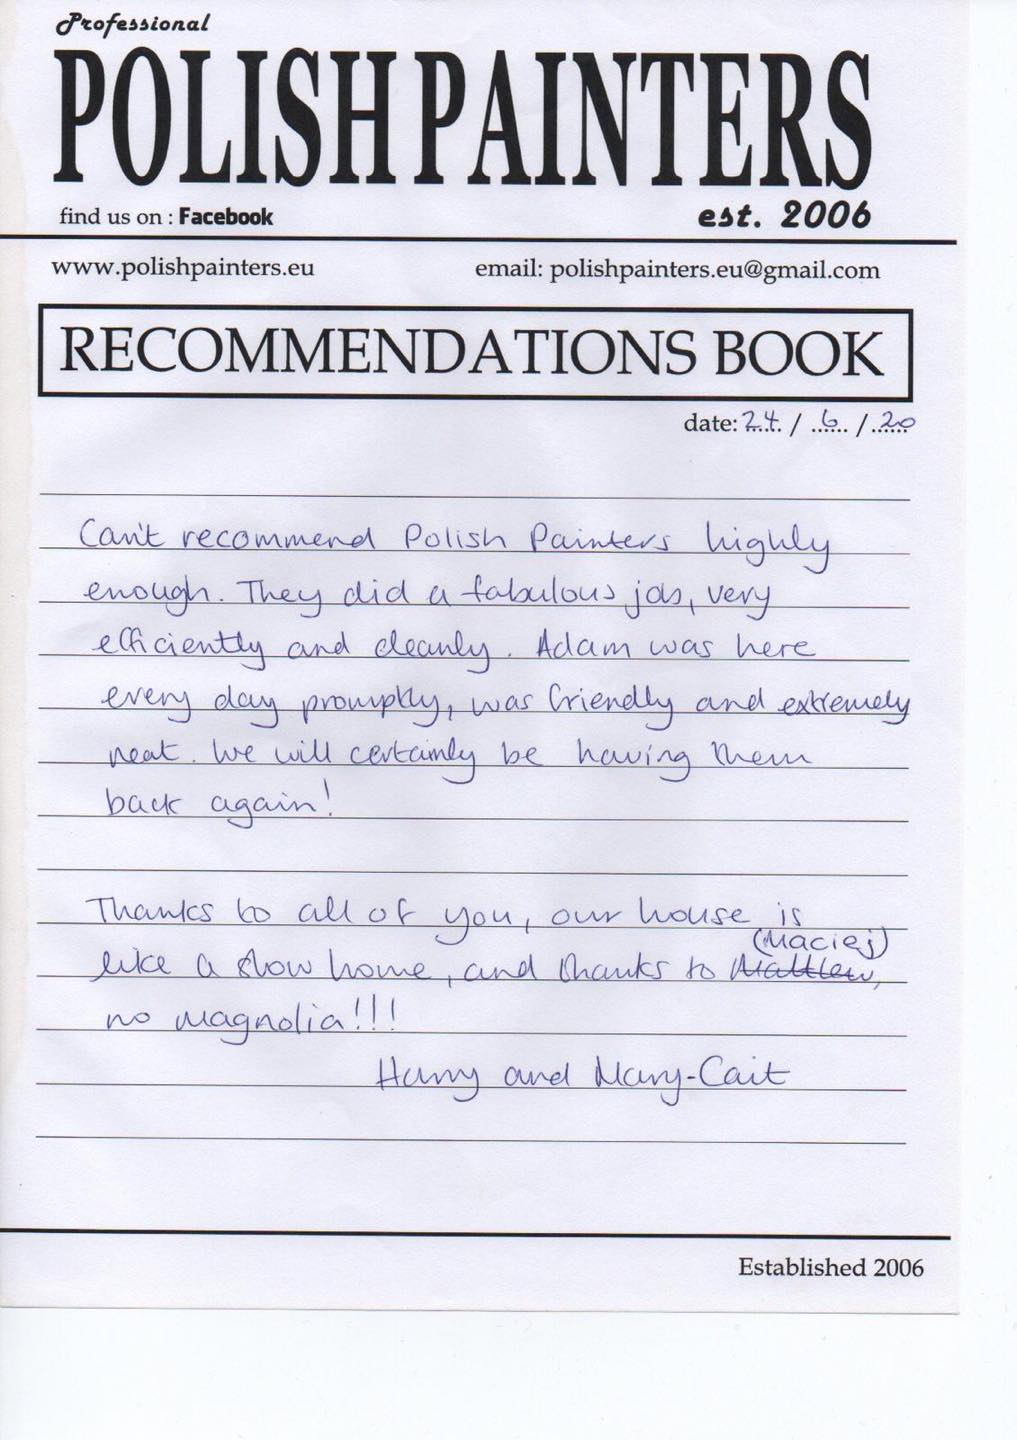 Professional
POLISH PAINTERS
find us on : Facebook
est. 2006
www.polishpainters.eu
email: polishpainters.eu@gmail.com
RECOMMENDATIONS BOOK
date: 24 / 6 / 20
Can't recommend Polish Painters highly
enough. They did a fabulous job, very
efficiently and cleanly. Adam was here
every day promptly, was friendly and extremely
neat. We will certainly be having them
back again!
Thanks to all of you, our house is
(Maciej)
like a show home, and thanks to Matthew,
no magnolia!!!
Harry and Mary-Cait
Established 2006